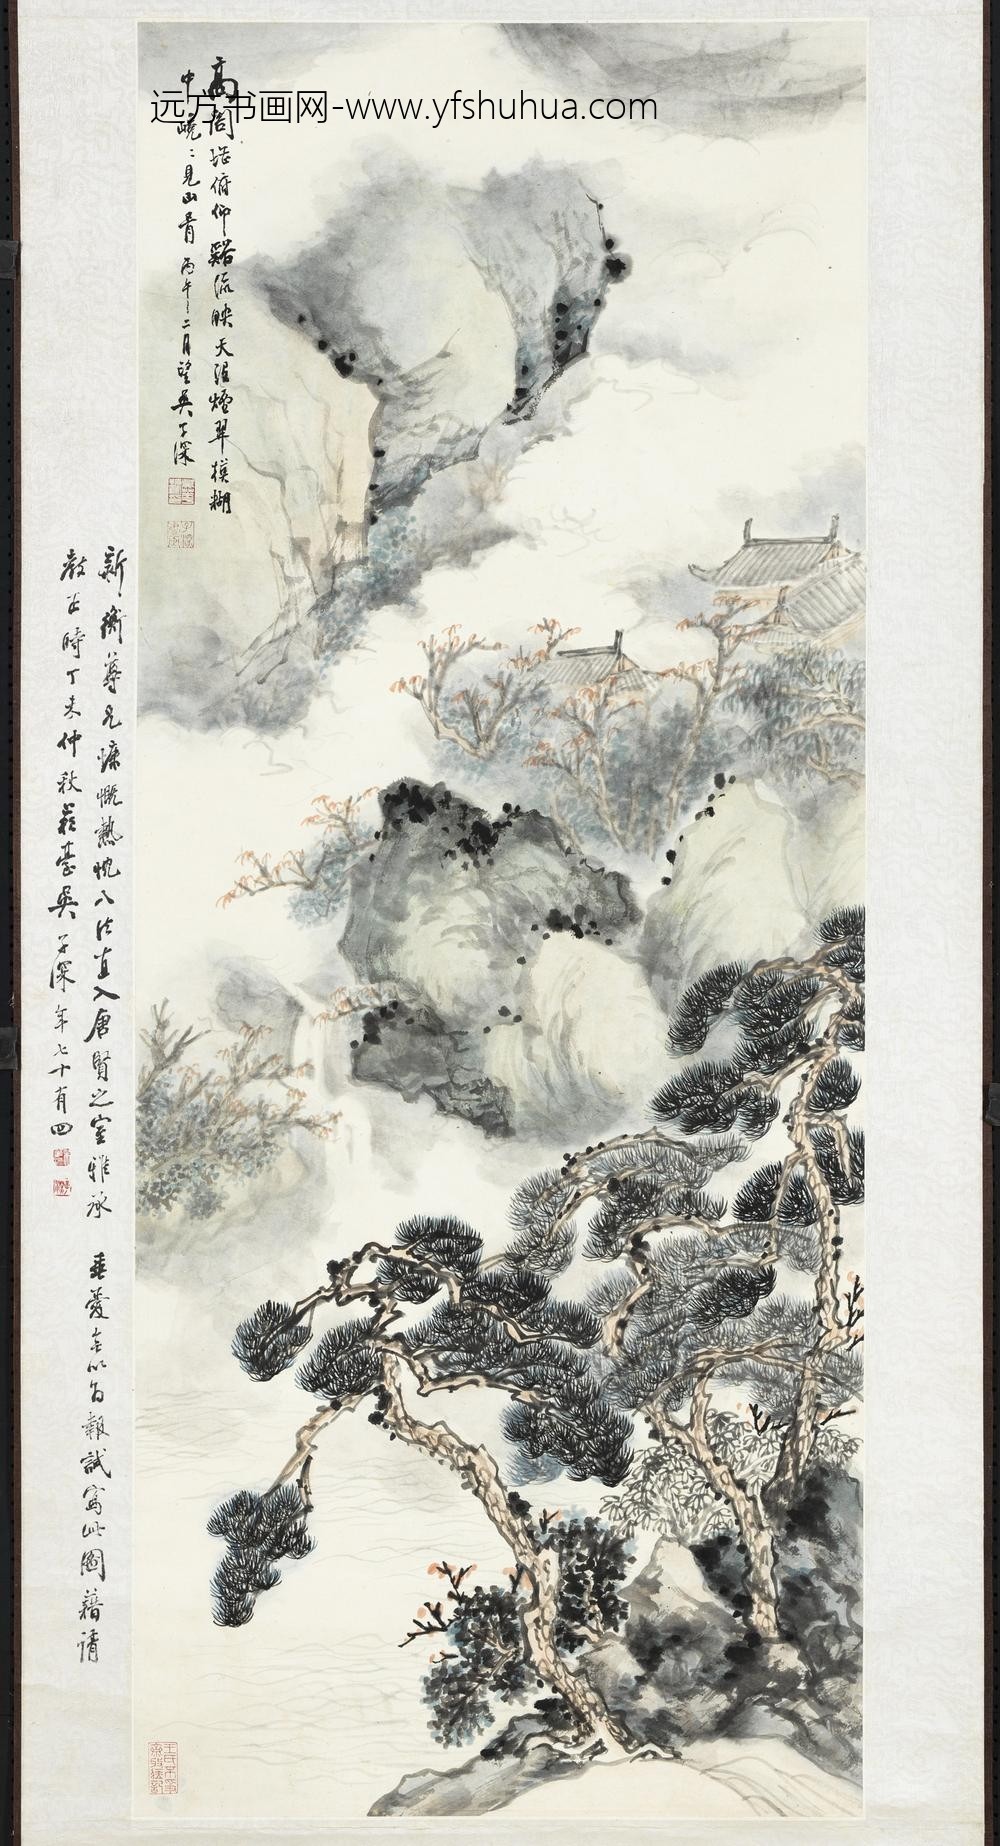 远方书画网-www.yfshuhua.com
高閣 俯仰谿流映天
煙翠模糊
中曉〻見山青 丙午二月望吳子深
新衡尊兄慷慨熱忱八法直入唐賢之室雅承
垂愛無以為報試寫此圖藉請
教正時丁未仲秋 吳子深年七十有四